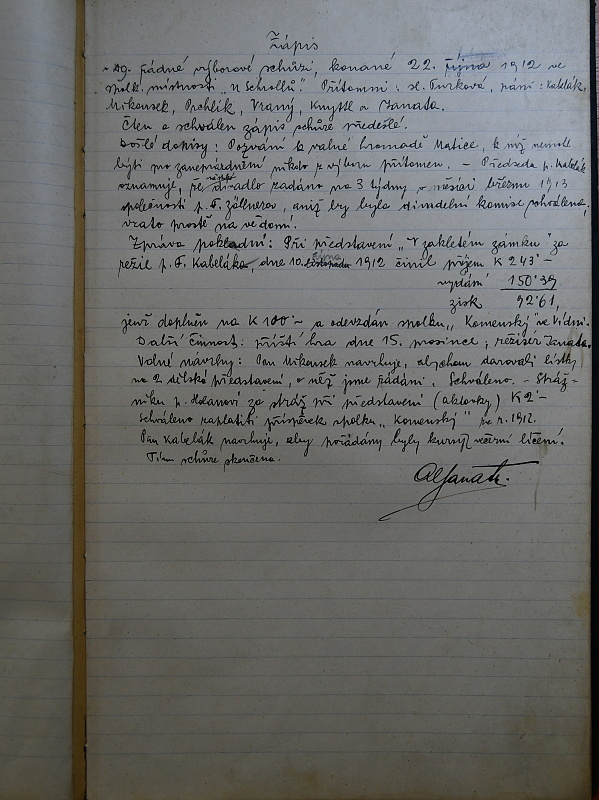 Zápis
řádné výborové schůzi, konané 22. října 1912 ve
spolk. místnosti „u Schrollů“. Přítomni: sl. Turková, páni: Kabelák,
Mikousek, Prchlík, Vraný, Knyttl a Janata.
Čten a schválen zápis schůze předešlé.
Došlé dopisy: Pozvání k valné hromadě Matice, k níž nemohl
býti pro zaneprázdnění nikdo z výboru přítomen. – Předseda p. Kabelák
oznamuje, že městské divadlo zadáno na 3 týdny v měsíci březnu 1913
společnosti p. F. Zöllnerov, aniž by byla divadelní komise pohválena,
vzato prostě na vědomí.
Zpráva pokladní: Při představení „V zakletém zámku“ za
režií p. F. Kabeláka, dne 10. listopadu října 1912 činil příjem K 243·–
vydání 150·39
zisk 92·61,
jenž doplněn na K 100·– a odevzdán spolku „Komenský“ ve Vídni.
Další činnost: příští hra dne 15. prosince; režisér Janata.
Volné návrhy: Pan Mikousek navrhuje, abychom darovali lístky
na 2 dětská představení, o něž jsme žádáni. Schváleno. – Stráž-
níku p. Holanovi za stráž při představení (aktovky) K 2·–
Schváleno zaplatiti příspěvek spolku „Komenský“ za r. 1912.
Pan Kabelák navrhuje, aby pořádány byly kursy večerní líčení.
Tím schůze skončena.
Al Janata.